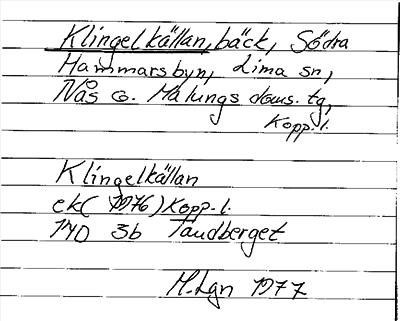 Klingelkällan, bäck, Södra
Hammarsbyn, Lima sn,
Nås o. Malungs doms. tg,
Kopp. l.
Klingelkällan
ek (1976) Kopp. l.
14D 3b Tandberget
M. Lgn 1977